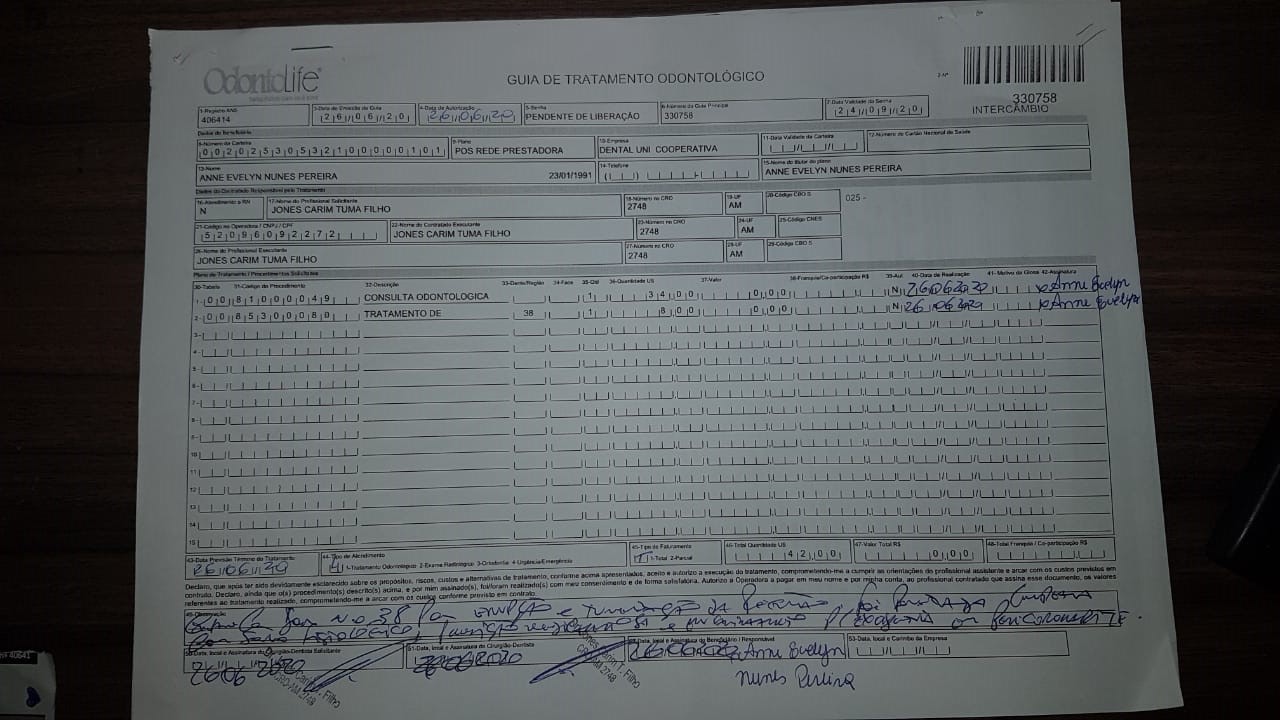 OdontoLife
GUIA DE TRATAMENTO ODONTOLÓGICO
2-Nº
330758
INTERCÂMBIO
1-Registro ANS
406414
3-Data de Emissão da Guia
26/06/20
4-Data de Autorização
26/06/20
5-Senha
PENDENTE DE LIBERAÇÃO
6-Número da Guia Principal
330758
7-Data Validade da Senha
24/09/20
Dados do Beneficiário
8-Número da Carteira
00202530532100000101
9-Plano
POS REDE PRESTADORA
10-Empresa
DENTAL UNI COOPERATIVA
11-Data Validade da Carteira
12-Número do Cartão Nacional de Saúde
13-Nome
ANNE EVELYN NUNES PEREIRA 23/01/1991
14-Telefone
15-Nome do titular do plano
ANNE EVELYN NUNES PEREIRA
Dados do Contratado Responsável pelo Tratamento
16-Atendimento a RN
N
17-Nome do Profissional Solicitante
JONES CARIM TUMA FILHO
18-Número no CRO
2748
19-UF
AM
20-Código CBO S
025 -
21-Código na Operadora / CNPJ / CPF
52096092272
22-Nome do Contratado Executante
JONES CARIM TUMA FILHO
23-Número no CRO
2748
24-UF
AM
25-Código CNES
26-Nome do Profissional Executante
JONES CARIM TUMA FILHO
27-Número no CRO
2748
28-UF
AM
29-Código CBO S
Plano de Tratamento / Procedimentos Solicitados
30-Tabela 31-Código do Procedimento 32-Descrição 33-Dente/Região 34-Face 35-Qtd 36-Quantidade US 37-Valor 38-Franquia/Co-participação R$ 39-Aut 40-Data de Realização 41- Motivo da Glosa 42-Assinatura
1- 00 81000049 CONSULTA ODONTOLOGICA 1 34,00 0,00 N 26062020 x Anne Evelyn
2- 00 85300080 TRATAMENTO DE 38 1 8,00 0,00 N 26.062020 x Anne Evelyn
3-
4-
5-
6-
7-
8-
9-
10
11
12
13
14
15
43-Data Previsão Término do Tratamento
26/06/20
44-Tipo de Atendimento
4 1-Tratamento Odontológico 2-Exame Radiológico 3-Ortodontia 4-Urgência/Emergência
45-Tipo de Faturamento
1-Total 2-Parcial
46-Total Quantidade US
42,00
47-Valor Total R$
0,00
48-Total Franquia / Co-participação R$
Declaro, que após ter sido devidamente esclarecido sobre os propósitos, riscos, custos e alternativas de tratamento, conforme acima apresentados, aceito e autorizo a execução do tratamento, comprometendo-me a cumprir as orientações do profissional assistente e arcar com os custos previstos em
contrato. Declaro, ainda que o(s) procedimento(s) descrito(s) acima, e por mim assinado(s), foi/foram realizado(s) com meu consentimento e de forma satisfatória. Autorizo a Operadora a pagar em meu nome e por minha conta, ao profissional contratado que assina esse documento, os valores
referentes ao tratamento realizado, comprometendo-me a arcar com os custos conforme previsto em contrato.
49-Observação
no 38
50-Data, local e Assinatura do Cirurgião-Dentista Solicitante
26/06/2020
51-Data, local e Assinatura do Cirurgião-Dentista
52-Data, local e Assinatura do Beneficiário / Responsável
26/06/2020 x Anne Evelyn
Nunes Pereira
53-Data, local e Carimbo da Empresa
Filho
CRO-AM 2748
T. Filho
CRO-AM 2748